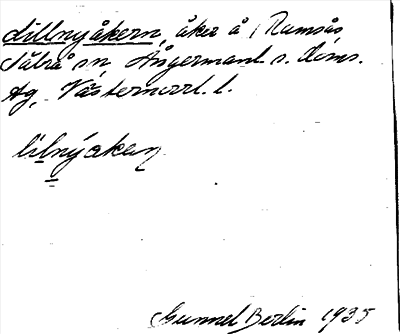 Lillnyåkern, åker å Ramsås,
Säbrå sn, Ångermanl. s. doms.
Ag, Västernorrl. l.
lilnýakeṇ
Gunnel Berlin 1935